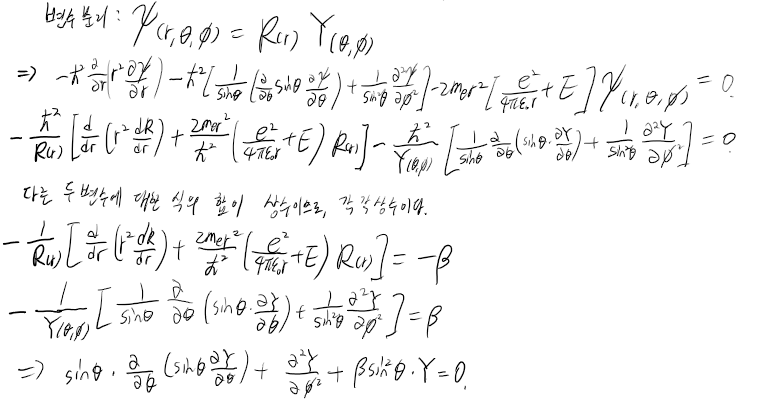 변수분리 : ψ(r, θ, ϕ) = R(r) Y(θ,ϕ)
⇒ -ℏ² ∂/∂r(r² ∂ψ/∂r) - ℏ²[1/sinθ (∂/∂θ sinθ ∂ψ/∂θ) + 1/sin²θ ∂²ψ/∂ϕ²] - 2mₑr²[e²/4πε₀r + E]ψ(r, θ, ϕ) = 0.
- ℏ²/R(r) [d/dr (r² dR/dr) + 2mₑr²/ℏ² (e²/4πε₀r + E) R(r)] - ℏ²/Y(θ,ϕ) [1/sinθ ∂/∂θ (sinθ · ∂Y/∂θ) + 1/sin²θ ∂²Y/∂ϕ²] = 0
다른 두 변수에 대한 식의 합이 상수이므로, 각각 상수이다.
- 1/R(r) [d/dr (r² dR/dr) + 2mₑr²/ℏ² (e²/4πε₀r + E) R(r)] = -β
- 1/Y(θ,ϕ) [1/sinθ ∂/∂θ (sinθ · ∂Y/∂θ) + 1/sin²θ ∂²Y/∂ϕ²] = β
⇒ sinθ · ∂/∂θ (sinθ ∂Y/∂θ) + ∂²Y/∂ϕ² + β sin²θ · Y = 0.